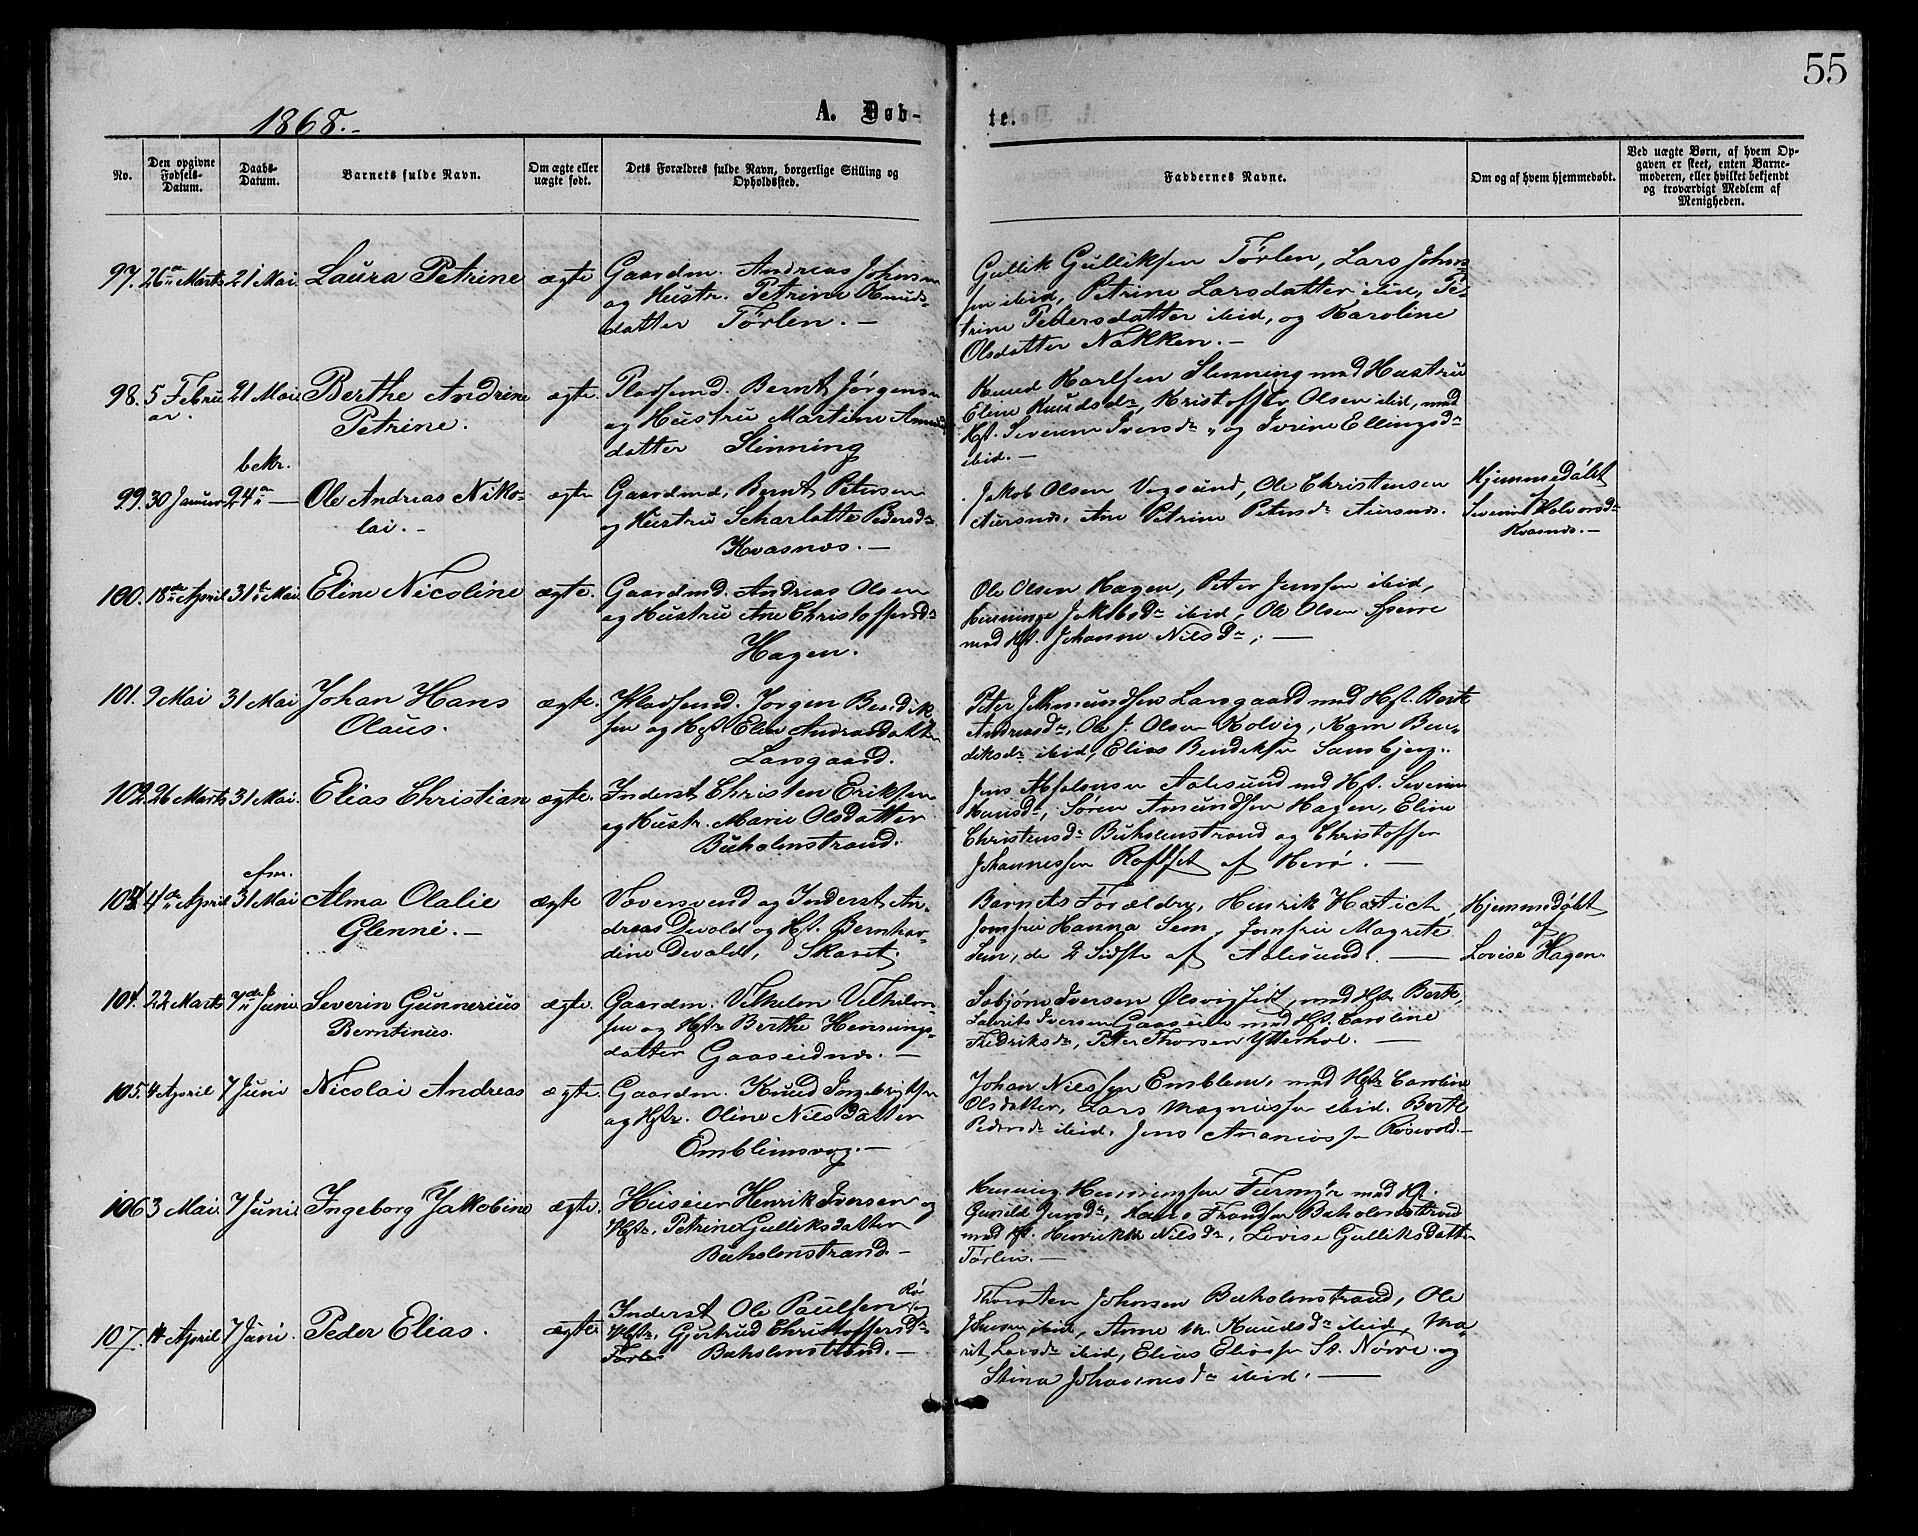 55
1868.-
A. Døb-
te.
No.
Den opgivne
Fødsels-
Datum.
Daabs-
Datum.
Barnets fulde Navn.
Om ægte eller
uægte født.
Dets Forældres fulde Navn, borgerlige Stilling og
Opholdssted.
Faddernes Navne.
Om og af hvem hjemmedøbt.
Ved uægte Børn, af hvem Op-
gaven er skeet, enten Barne-
moderen, eller hvilket bekjendt
og troværdigt Medlem af
Menigheden.
97. 26de Marts 21 Mai. Laura Petrine ægte Gaardm. Andreas Johnsen
og Hustr. Petrine Knuds-
datter Tørlen. -
Gullik Gulliksen Tørlen, Lars Johns-
sen ibid, Petrine Larsdatter ibid, Pe-
trine Pedersdatter ibid, og Karoline
Olsdatter Nakken. -
98. 5 Febru
ar. 21 Mai Berthe Andrine
Petrine. ægte. Pladsmd. Bernt Jørgensen
og Hustru Martine
datter Slinning
Knud Karlsen Slinning med Hustru
Eline Knudsdr, Kristoffer Olsen ibid, med
Hst. Severine Iversdr, og Ivrine Ellingsdr
ibid. -
bekr.
99. 30 Januar 24de — Ole Andreas Niko-
lai. - ægte Gaardmd. Bernt Petersen
og Hustru Scharlotte Pedersdr
Kvasnes. -
Jakob Olsen Vegsund, Ole Christensen
Aursnes, Ane Petrine Petersdr Aursnes.
Hjemmedøbt
Severine Halvorsdr
Kvasnes. -
100. 18de April 31te Mai. Eline Nicoline ægte. Gaardmd. Andreas Olsen
og Hustru Ane Christoffersdr
Hagen.
Ole Olsen Hagen, Peter Jenssen ibid,
Jakobsdr ibid, Ole Olsen Sperre
med Hst. Johanne Nilsdr; —
101. 9 Mai 31 Mai Johan Hans
Olaus. ægte. Pladsmd. Jørgen Bendik-
sen og Hst Eline Andreasdatter
Larsgaard.
Peter Larsgaard med Hst. Berte
Andreasdr, Ole J. Olsen Kolvig, Karn Ben-
diksdr ibid, Elias Bendiksen
102. 26 Marts 31 Mai. Elias Christian ægte. Inderst Christen Eriksen
og Hustr. Marie Olsdatter
Buholmstrand.
Jens Absalonsen Aalesund med Hst. Severine
Hansdr, Søren Amundsen Hagen, Eline
Christensdr Buholmstrand og Christoffer
Johannessen af Herø. —
efm.
103. 4de April 31 Mai Alma Olalie
Glenné. - ægte Væversvend og Inderst An-
dreas Devold og Hst. Bernhar-
dine Devold, Skaret.
Barnets Forældre, Henrik
Jomfru Hanna Sem, Jomfru Magrete
Sem, de 2 Sidste af Aalesund. —
Hjemmedøbt
af
Lovise Hagen.
104. 22 Marts 7de Juni. Severin Gunnerius
Berntinus. ægte. Gaardm. Vilhelm Vilhelm-
sen og Hstr Berthe Hennings-
datter Gaaseidnes. -
Iversen med Hstr Berte,
Laurits Iversen Gaaseide med Hst. Caroline
Fredriksdr, Peter Thorsen Ytterhol. —
105. 4 April 7 Juni Nicolai Andreas ægte. Gaardm. Knud Ingebrigtsen
og Hstr. Oline Nilsdatter
Emblemsvog. -
Johan Nilssen Emblem, med Hstr Caroline
Olsdatter, Lars Magnussen ibid. Berte
Pedersdr ibid, Jens Ananiassen Røsevold. -
106 3 Mai 7 Juni. Ingeborg Jakobine ægte. Huseier Henrik Iversen og
Hstr. Petrine Gulliksdatter
Buholmstrand. -
Henning Henningsen Furmyr med Hst.
Gunild Jensdr, Hans Frandsen Buholmstrand
med Hst. Henrikke Nilsdr, Lovise Gulliksdatter
Tørlen. -
107. 14 April 7 Juni. Peder Elias. ægte Inderst Ole Paulsen Rø og
Hstr. Gjertrud Christoffersdr
Tørlen Buholmstrand. -
Thorsten Johnsen Buholmstrand, Ole
ibid, Anne M. Knudsdr ibid, Ma-
rit Larsdr ibid, Elias Eliassen St. Nørve og
Stina Johannesdr ibid. —